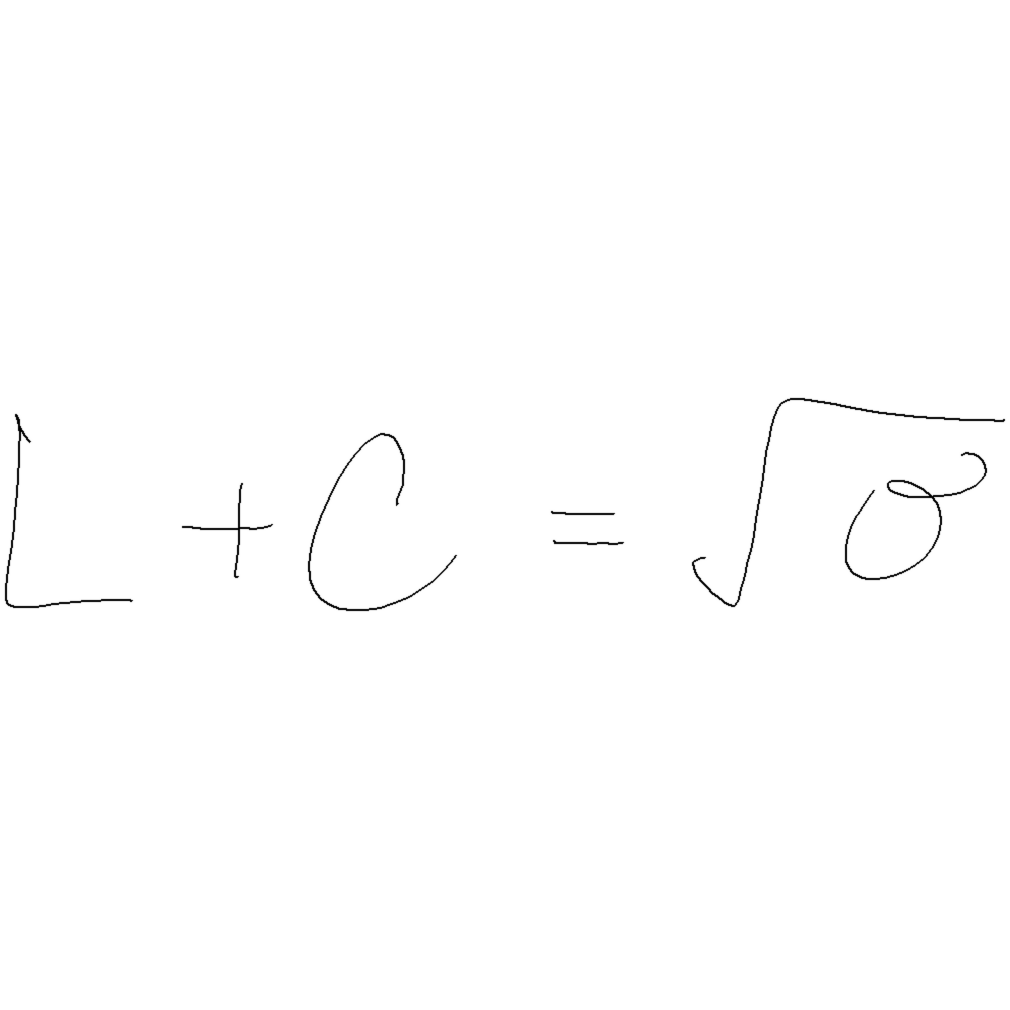 L + C = √σ